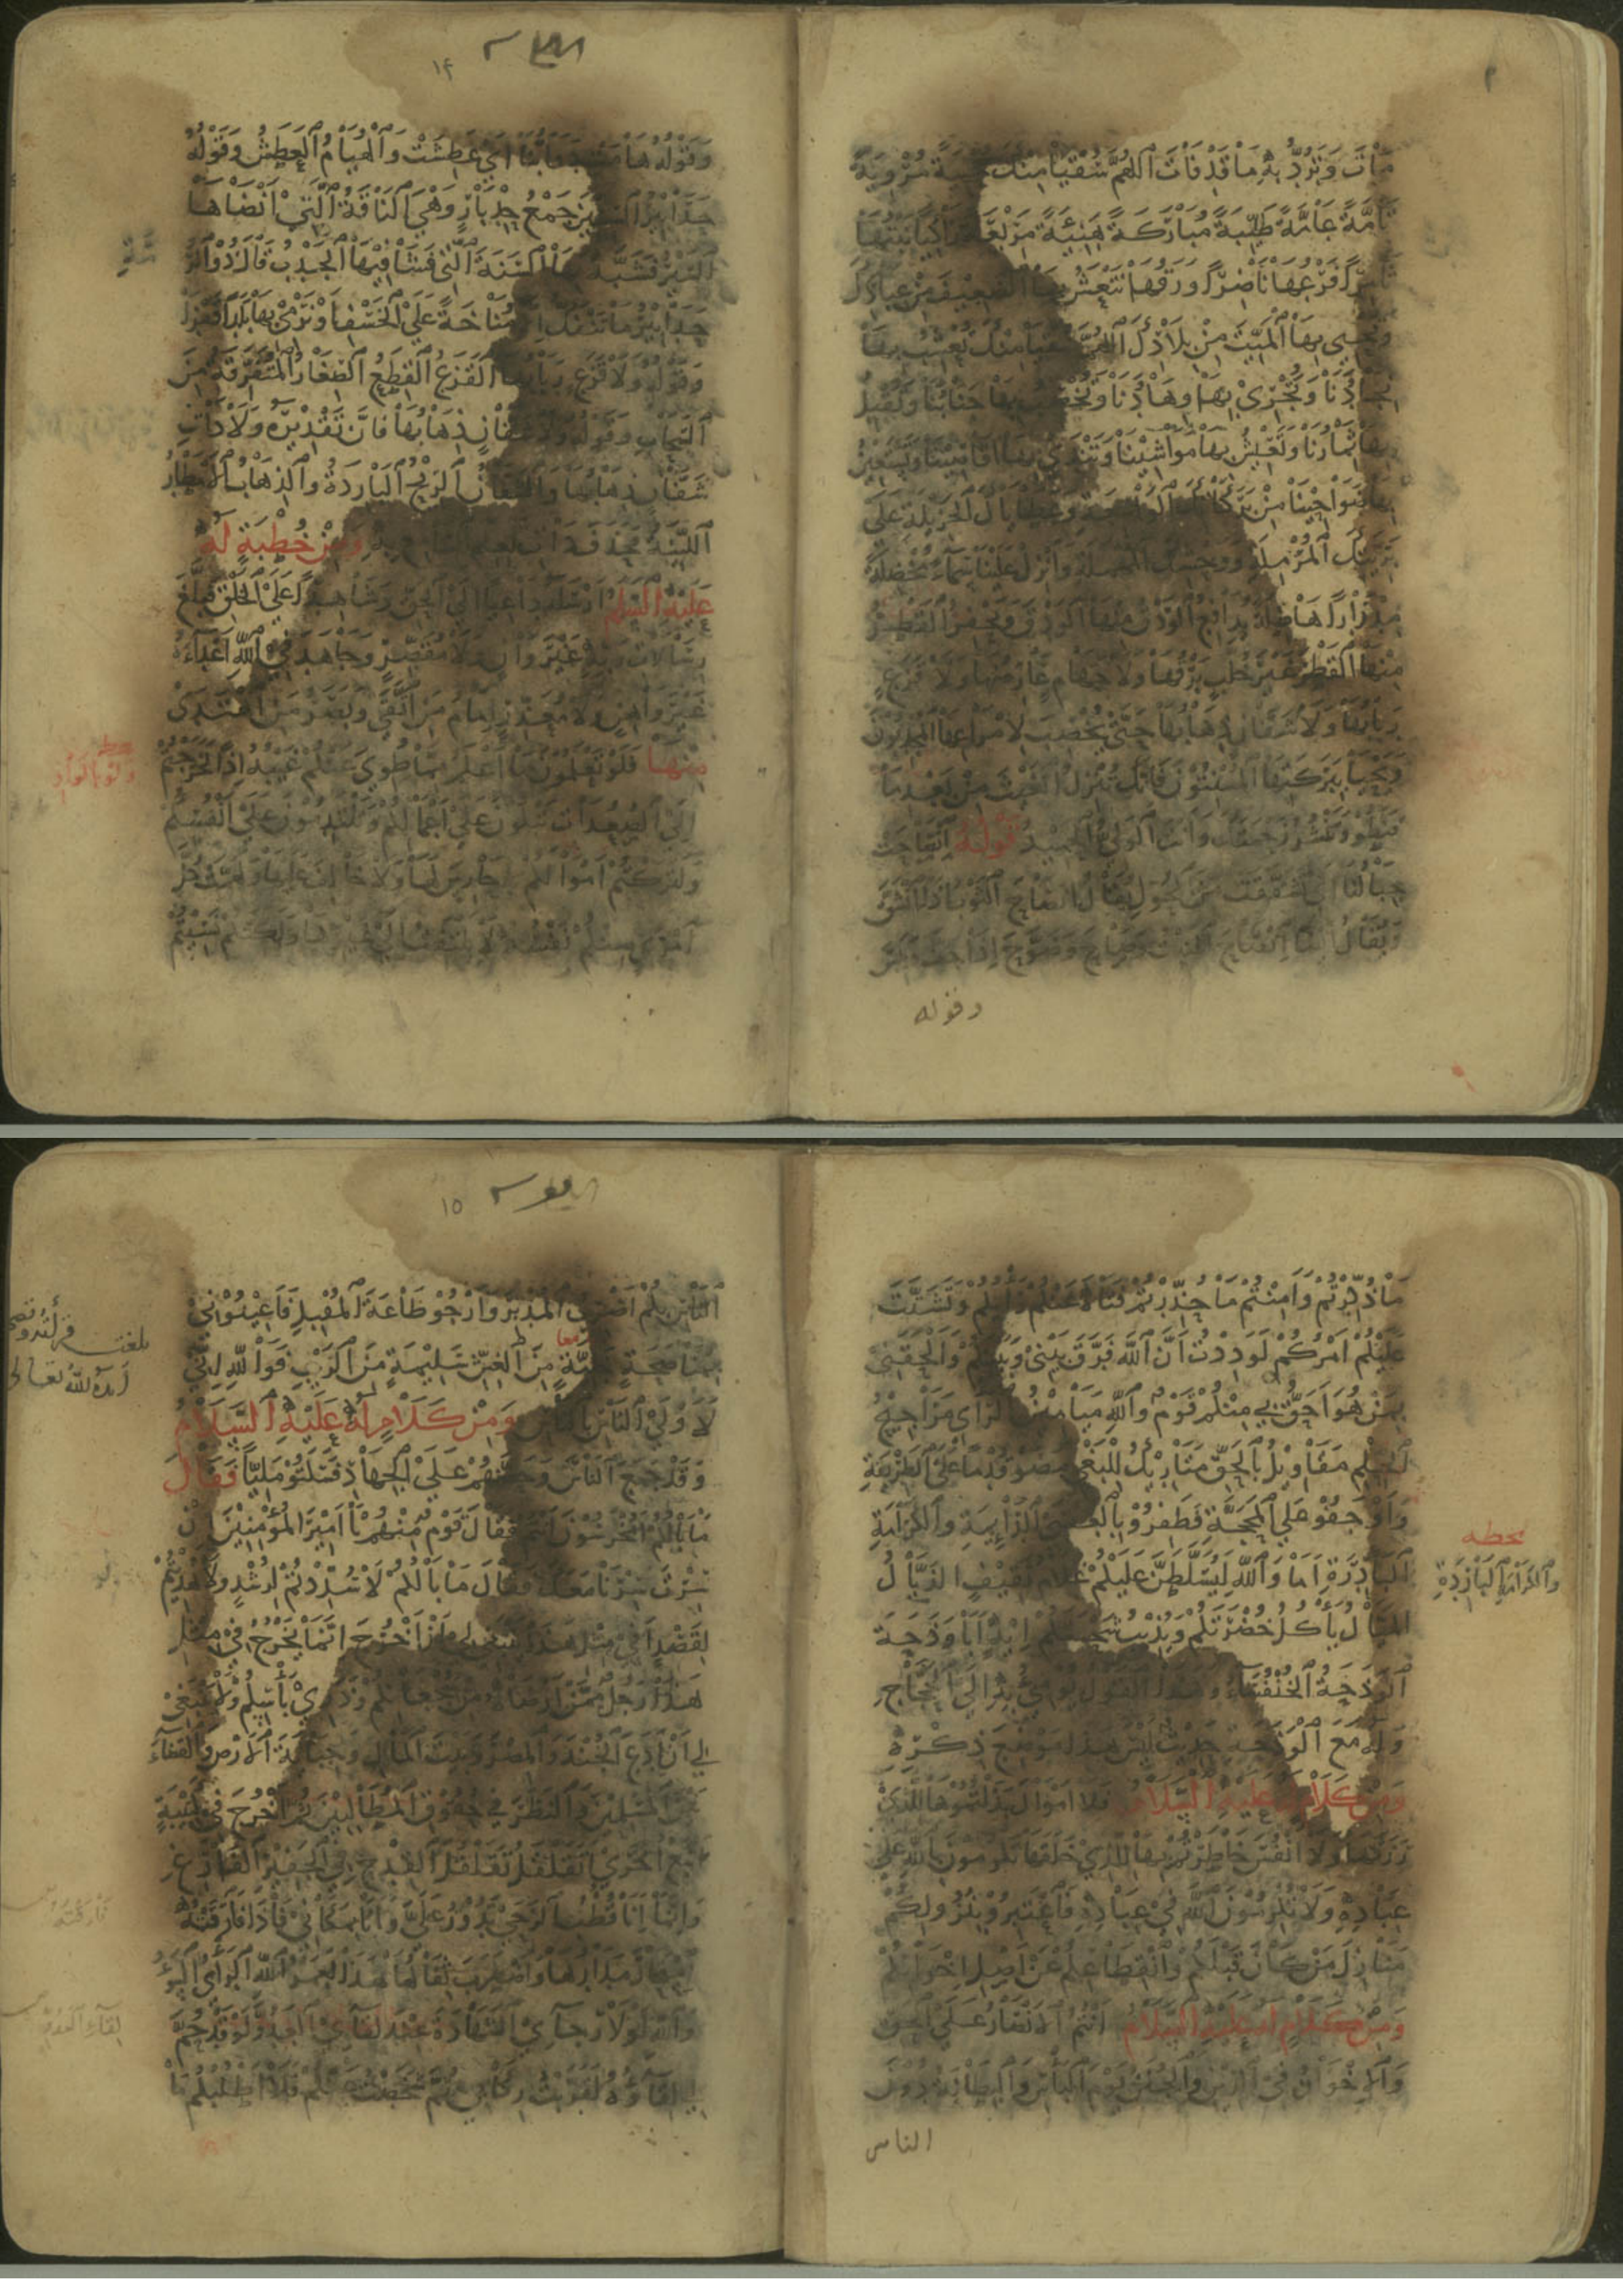 مافات وترد به ما قد فات اللهم سقيا منك مروية
تامة عامة طيبة مباركة هنيئة زاكيا نبتها
ثامرا فرعها ناضرا ورقها تنعش بها الضعيف من عبادك
وتحيي بها الميت من بلادك اللهم سقيا منك تعشب بها
نجادنا وتجري بها وهادنا وتخصب بها جنابنا وتقبل
بها ثمارنا وتعيش بها مواشينا وتندى بها اقاصينا وتستعين
بها ضواحينا من بركاتك الواسعة وعطاياك الجزيلة على
بريتك المرملة ووحشك المهملة وانزل علينا سماء مخضلة
مدرارا هاطلة يدافع الودق منها الودق ويحفز القطر
منها القطر غير خلب برقها ولا جهام عارضها ولا قزع
ربابها ولا شفان ذهابها حتى يخصب لامراعها المجدبون
ويحيا ببركتها المسنتون فانك تنزل الغيث من بعد ما
قنطوا وتنشر رحمتك وانت الولي الحميد قوله انصاحت
جبالنا اي تشققت من المحول يقال انصاح الثوب اذا انشق
ويقال ايضا انصاح النبت وصاح وصوح اذا جف
وقوله
١٤
وقوله وهامت دوابنا اي عطشت والهيام العطش وقوله
حدابير السنين جمع حدبار وهي الناقة التي انضاها
السير فشبه بها السنة التي فشا فيها الجدب قال ذو الرمة
حدابير ما تنفك الا مناخة على الخسف او نرمي بها بلدا قفرا
وقوله ولا قزع ربابها القزع القطع الصغار المتفرقة من
السحاب وقوله ولا شفان ذهابها فان تقديره ولا ذات
شفان ذهابها والشفان الريح الباردة والذهاب الامطار
اللينة فحذف ذات لعلم السامع به ومن خطبة له
عليه السلم ارسله داعيا الى الحق وشاهدا على الخلق فبلغ
رسالات ربه غير وان ولا مقصر وجاهد في الله اعداءه
غير واهن ولا معذر امام من اتقى وبصر من اهتدى
منها فلو تعلمون ما اعلم مما طوي عنكم غيبه اذا لخرجتم
الى الصعدات تبكون على اعمالكم وتلتدمون على انفسكم
ولتركتم اموالكم لا حارس لها ولا خالف عليها
امرئ منكم نفسه لا يلتفت الى غيرها ولكنكم نسيتم
ما ذكرتم وامنتم ما حذرتم فتاه عنكم رايكم وتشتت
عليكم امركم لوددت ان الله فرق بيني وبينكم والحقني
بمن هو احق بي منكم قوم والله ميامين الراي مراجيح
الحلم مقاويل بالحق متاريك للبغي مضوا قدما على الطريقة
واوجفوا على المحجة فظفروا بالعقبى الدائمة والكرامة
الباردة اما والله ليسلطن عليكم غلام ثقيف الذيال
الميال يأكل خضرتكم ويذيب شحمتكم ايه ابا وذحة
الوذحة الخنفساء وهذا القول يومئ به الى الحجاج
وله مع الوذحة حديث ليس هذا موضع ذكره
بخطه
والكرامة الباردة
ومن كلام له عليه السلام فلا اموال بذلتموها للذي
رزقها ولا انفس خاطرتم بها للذي خلقها تكرمون بالله على
عباده ولا تكرمون الله في عباده فاعتبروا بنزولكم
منازل من كان قبلكم وانقطاعكم عن اصل اخوانكم
ومن كلام له عليه السلام انتم الانصار على الحق
والاخوان في الدين والجنن يوم البأس والبطانة دون
الناس
١٥
الناس بكم اضرب المدبر وارجو طاعة المقبل فاعينوني
بمناصحة خلية من الغش سليمة من الريب فوالله اني
لاولى الناس بالناس ومن كلام له عليه السلام
وقد جمع الناس وحضهم على الجهاد فسكتوا مليا فقال
ما بالكم امخرسون انتم فقال قوم منهم يا امير المؤمنين ان
سرت سرنا معك فقال ما بالكم لا سددتم لرشد ولا هديتم
لقصد افي مثل هذا ينبغي لي ان اخرج انما يخرج في مثل
هذا رجل ممن ارضاه من شجعانكم وذوي بأسكم ولا ينبغي
لي ان ادع الجند والمصر وبيت المال وجباية الارض والقضاء
بين المسلمين والنظر في حقوق المطالبين ثم اخرج في كتيبة
اتبع اخرى اتقلقل تقلقل القدح في الجفير الفارغ
وانما انا قطب الرحى تدور علي وانا بمكاني فاذا فارقته
استحار مدارها واضطرب ثفالها هذا لعمر الله الراي السوء
والله لولا رجائي الشهادة عند لقائي العدو لو قد حم
لي لقاؤه لقربت ركابي ثم شخصت عنكم فلا اطلبكم ما